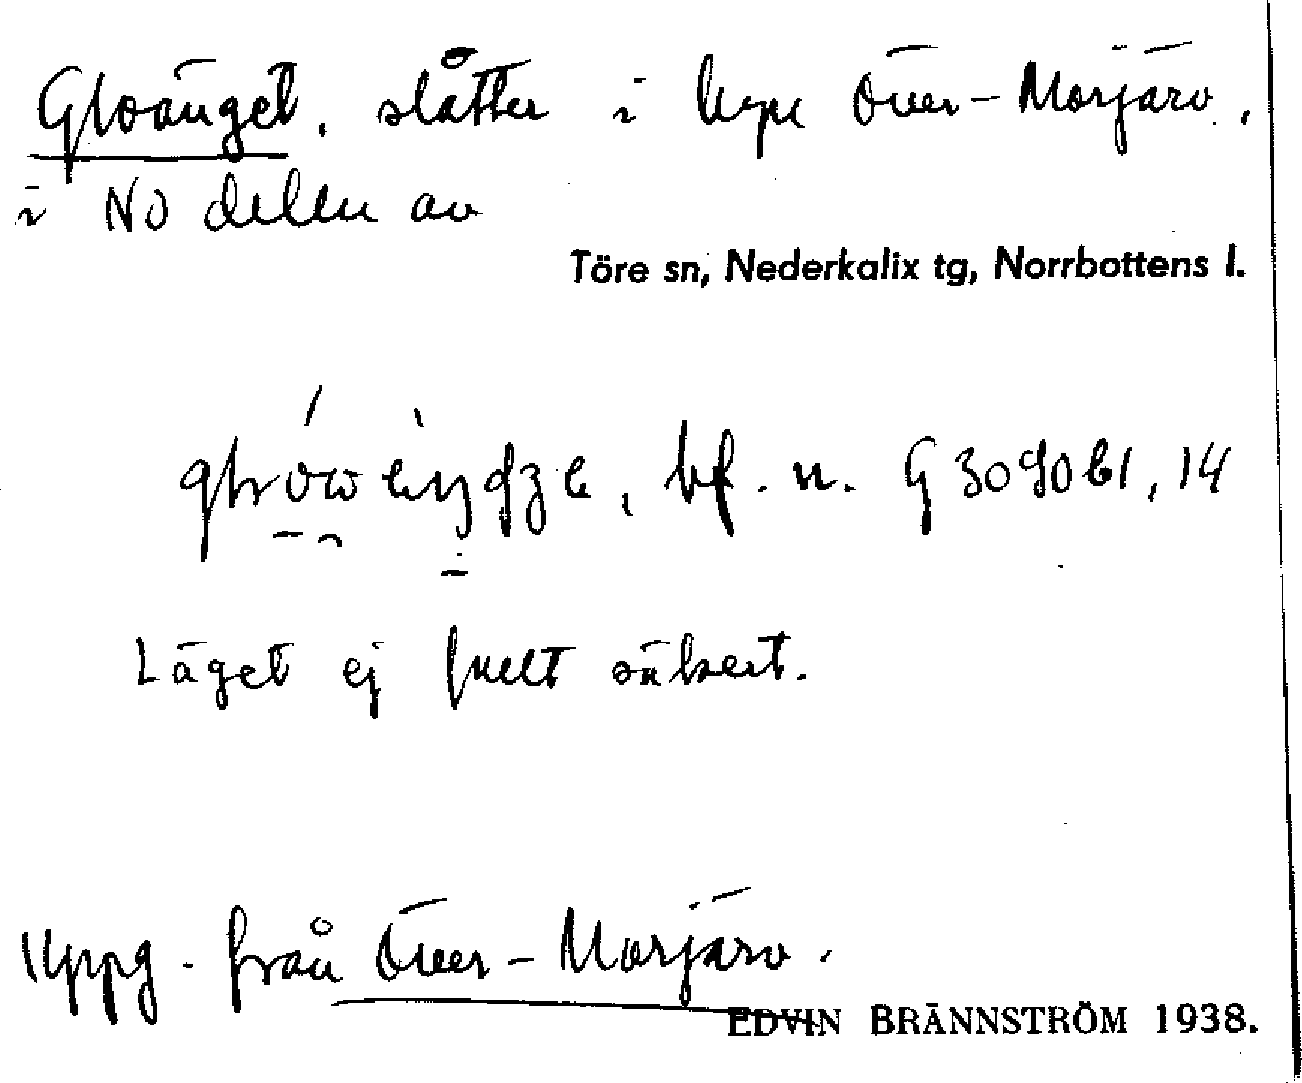 Gloänget, slåtter i byn Över-Morjärv,
i NO delen av
Töre sn, Nederkalix tg, Norrbottens l.
bf. n. G 3090b1, 14
Läget ej fullt säkert.
Uppg. från Över-Morjärv.
EDVIN BRÄNNSTRÖM 1938.